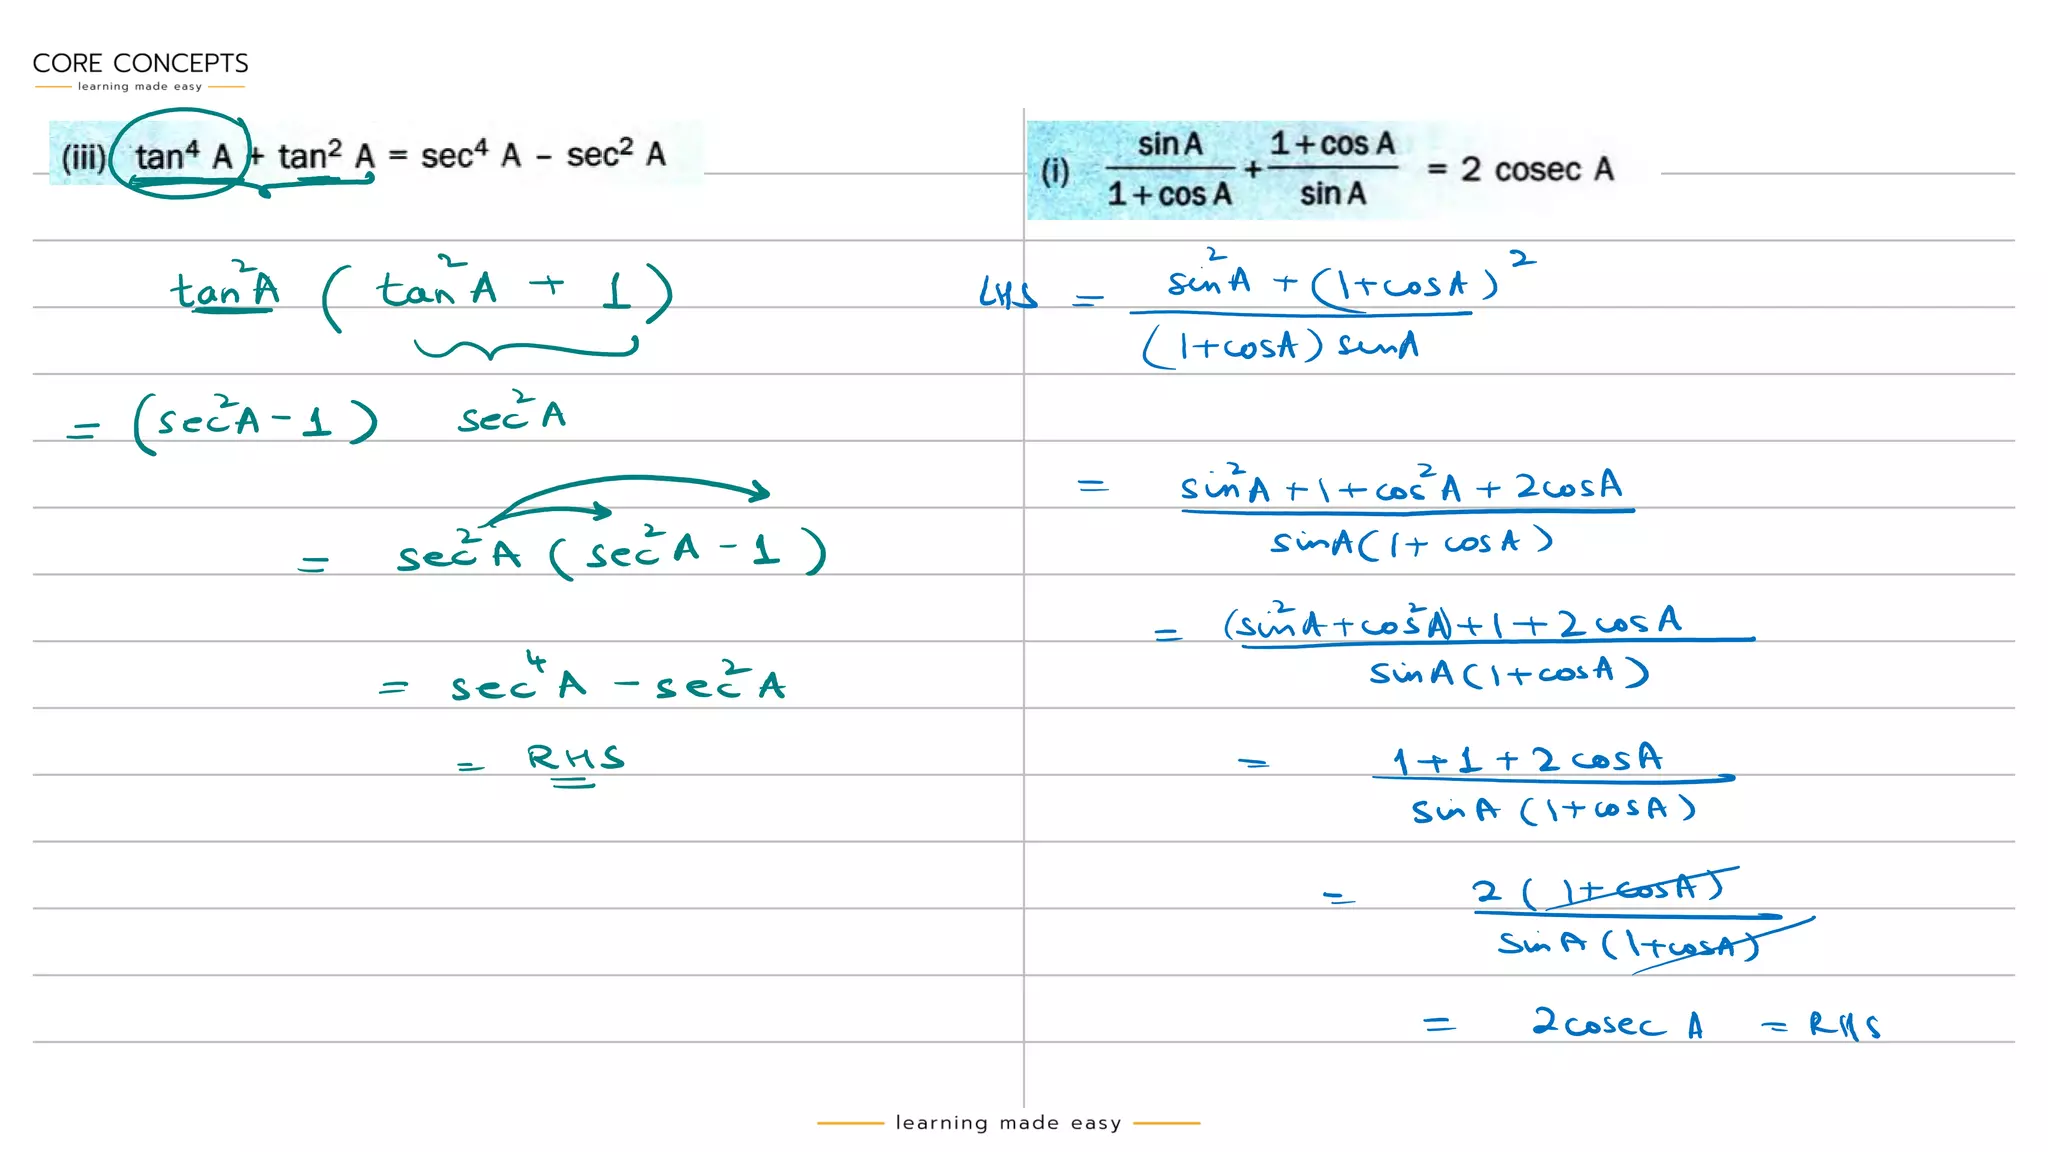 CORE CONCEPTS
learning made easy
(iii) tan⁴ A + tan² A = sec⁴ A – sec² A
tan²A ( tan²A + 1 )
= (sec²A - 1 ) sec²A
= sec²A ( sec²A - 1 )
= sec⁴A - sec²A
= RHS
(i) sin A / 1 + cos A + 1 + cos A / sin A = 2 cosec A
LHS = sin²A + (1+cosA)² / (1+cosA) sinA
= sin²A + 1 + cos²A + 2cosA / sinA(1+ cosA)
= (sin²A + cos²A) + 1 + 2cosA / sinA(1+cosA)
= 1 + 1 + 2cosA / sinA (1+cosA)
= 2 (1+cosA) / sinA (1+cosA)
= 2cosec A = RHS
learning made easy